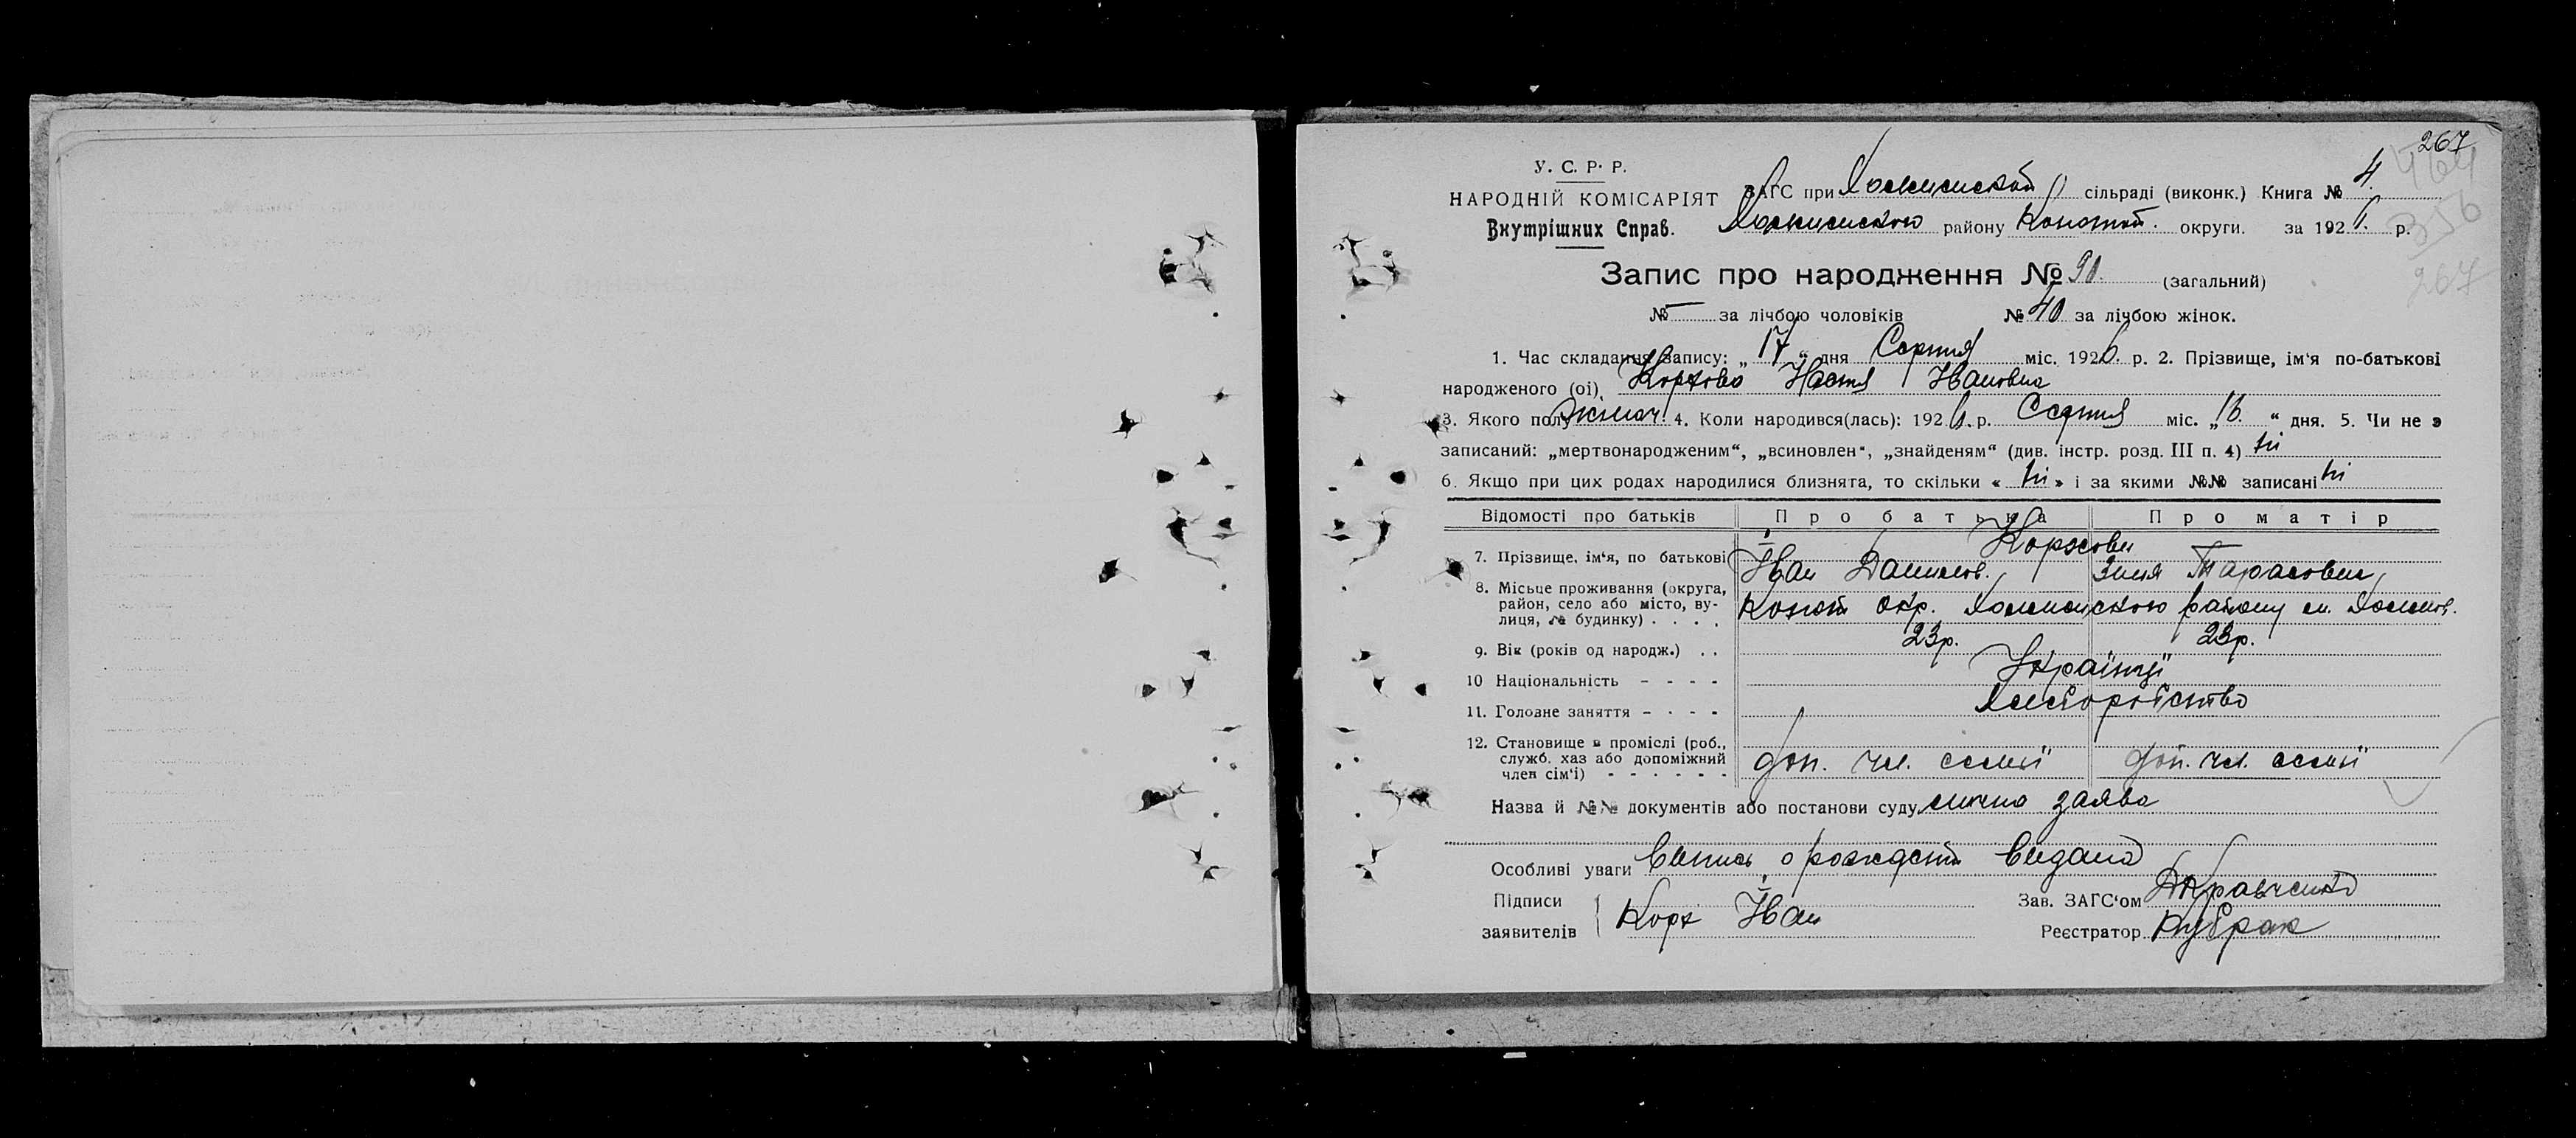 267
464
356
267
У. С. Р. Р.
НАРОДНІЙ КОМІСАРІЯТ
Внутрішних Справ.
ЗАГС при сільраді (виконк.) Книга № 4.
району Конотоп. округи. за 1926 р.
Запис про народження № 90. (загальний)
№ — за лічбою чоловіків № 40 за лічбою жінок.
1. Час складання запису: „ 17 “ дня Серпня міс. 1926. р. 2. Прізвище, ім‘я по-батькові
народженого (ої) Коржова Настя Івановна
3. Якого полу 4. Коли народився(лась): 1926. р. Серпня міс. „ 16. “ дня. 5. Чи не э
записаний: „мертвонародженим“, „всиновлен“, „знайденям“ (див. інстр. розд. III п. 4) ні
6. Якщо при цих родах народилися близнята, то скільки « ні » і за якими №№ записані ні
Відомості про батьків Про батька Про матір
7. Прізвище, ім‘я, по батькові Коржови
Іван Данилов. Тарасовна
8. Місьце проживання (округа,
район, село або місто, ву-
лиця, № будинку) . . . . Конот окр. району
9. Вік (років од народж.) . . 23р. 23р.
10 Національність - - - - Українці
11. Головне заняття - - - - Хліборобство
12. Становище в промислі (роб.,
служб. хаз або допоміжний
член сім‘і) - - - - - - доп. чл. семьї доп. чл. семьї
Назва й №№ документів або постанови суду лична заява
Особливі уваги Випись о рождении видана
Підписи
заявителів Корж Іван
Зав. ЗАГС‘ом Кравченко
Реєстратор Кубрак